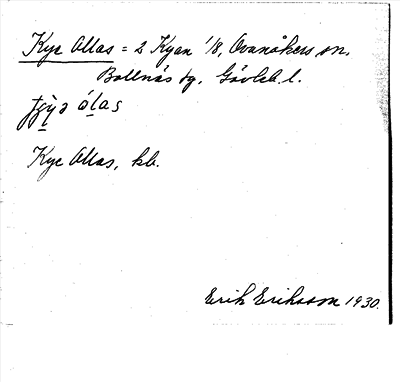 Kye Ollas = 2 Kyan 1/8, Ovanåkers sn,
Bollnäs tg, Gävleb. l.
Kye Ollas, kb.
Erik Eriksson 1930.